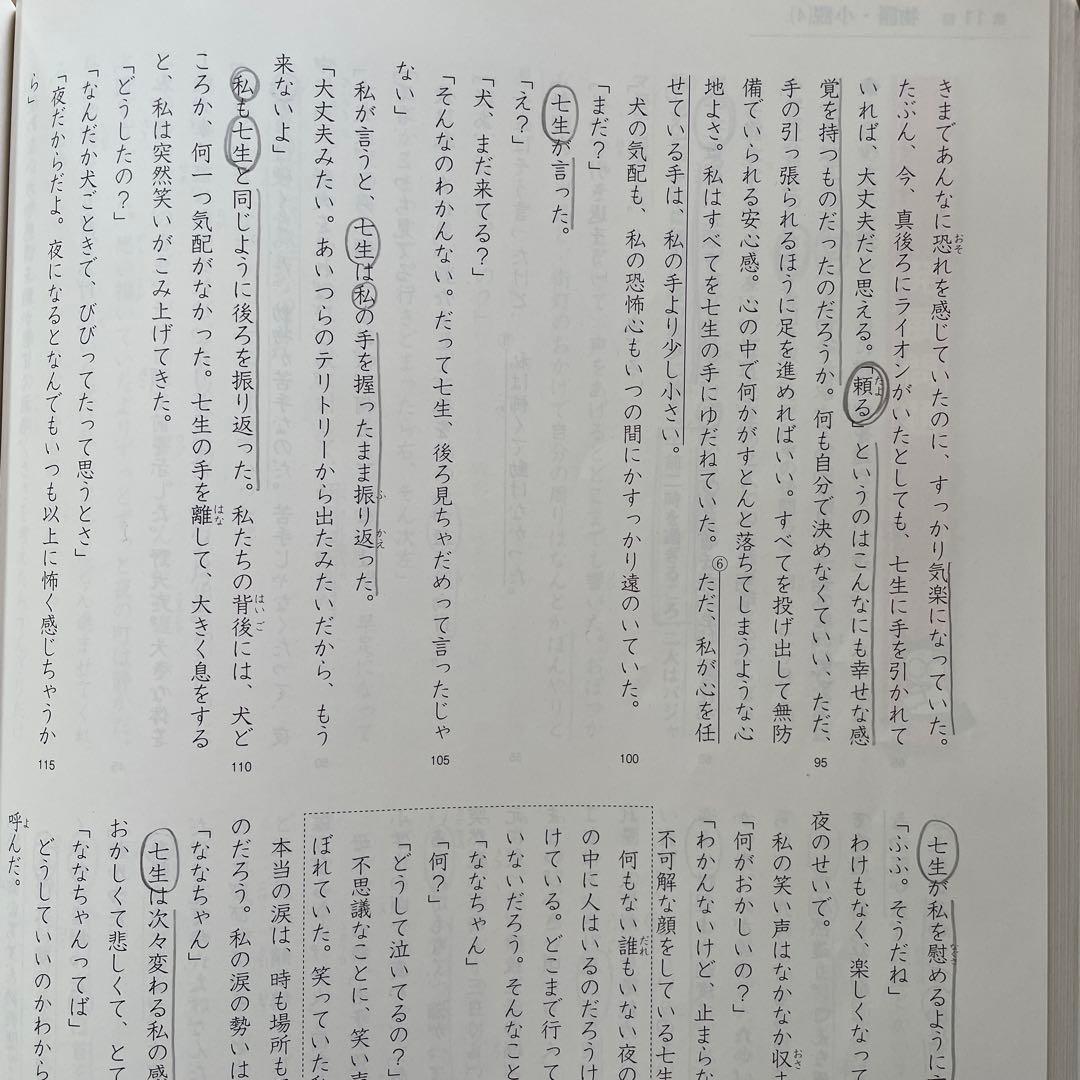 きまであんなに恐れを感じていたのに、すっかり気楽になっていた。
たぶん、今、真後ろにライオンがいたとしても、七生に手を引かれて
いれば、大丈夫だと思える。「頼る」というのはこんなにも幸せな感
覚を持つものだったのだろうか。何も自分で決めなくていい、ただ、
手の引っ張られるほうに足を進めればいい。すべてを投げ出して無防
備でいられる安心感。心の中で何かがすとんと落ちてしまうような心
地よさ。私はすべてを七生の手にゆだねていた。⑥ただ、私が心を任
せている手は、私の手より少し小さい。
犬の気配も、私の恐怖心もいつの間にかすっかり遠のいていた。
「まだ？」
七生が言った。
「え？」
「犬、まだ来てる？」
「そんなのわかんない。だって七生、後ろ見ちゃだめって言ったじゃ
ない」
私が言うと、七生は私の手を握ったまま振り返った。
「大丈夫みたい。あいつらのテリトリーから出たみたいだから、もう
来ないよ」
私も七生と同じように後ろを振り返った。私たちの背後には、犬ど
ころか、何一つ気配がなかった。七生の手を離して、大きく息をする
と、私は突然笑いがこみ上げてきた。
「どうしたの？」
「なんだか犬ごときで、びびってたって思うとさ」
「夜だからだよ。夜になるとなんでもいつも以上に怖く感じちゃうか
ら」
95
100
105
110
115
七生が私を慰めるように
「ふふ。そうだね」
わけもなく、楽しくなって
夜のせいで。
私の笑い声はなかなか収
「何がおかしいの？」
「わかんないけど、止まらな
不可解な顔をしている七生
何もない誰もいない夜の
の中に人はいるのだろうけ
けている。どこまで行って
いないだろう。そんなこと
「ななちゃん」
「何？」
「どうして泣いてるの？」
不思議なことに、笑い声
ぼれていた。笑っていた
本当の涙は、時も場所も
のだろう。私の涙の勢いは
「ななちゃん」
七生は次々変わる私の感
おかしくて悲しくて、とて
「ななちゃんってば」
どうしていいのかわから
呼んだ。